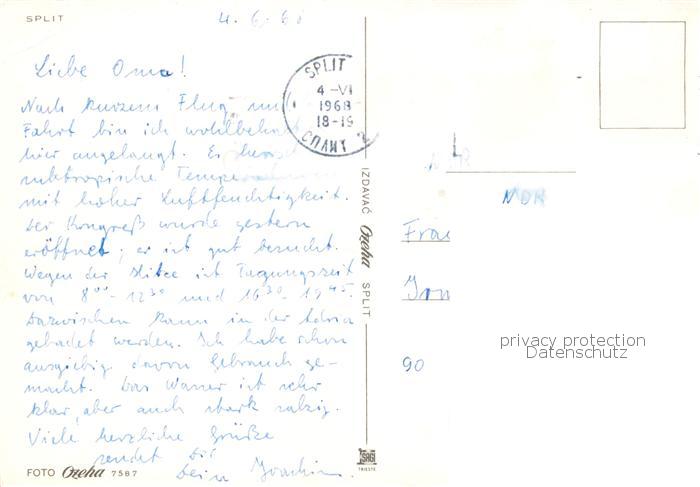 SPLIT
4. 6. 68
Liebe Oma!
Nach kurzem Flug und
Fahrt bin ich wohlbehal
hier angelangt. Es herrsch
subtropische Tempera
mit hoher Luftfeuchtigkeit.
Der Kongreß wurde gestern
eröffnet; er ist gut besucht.
Wegen der Hitze ist Tagungszeit
von 8⁰⁰ - 12³⁰ und 16³⁰ - 19⁴⁵.
Dazwischen kann in der Adria
gebadet werden. Ich habe schon
ausgiebig davon Gebrauch ge-
macht. Das Wasser ist sehr
klar, aber auch stark salzig.
Viele herzliche Grüße
sendet Dir
Dein Joachim.
FOTO Ozeha 7587
SPLIT
4-VI
1968
18-19
СПЛИТ 2
IZDAVAČ Ozeha SPLIT
TRIESTE
NDR
Frau
90
privacy protection
Datenschutz